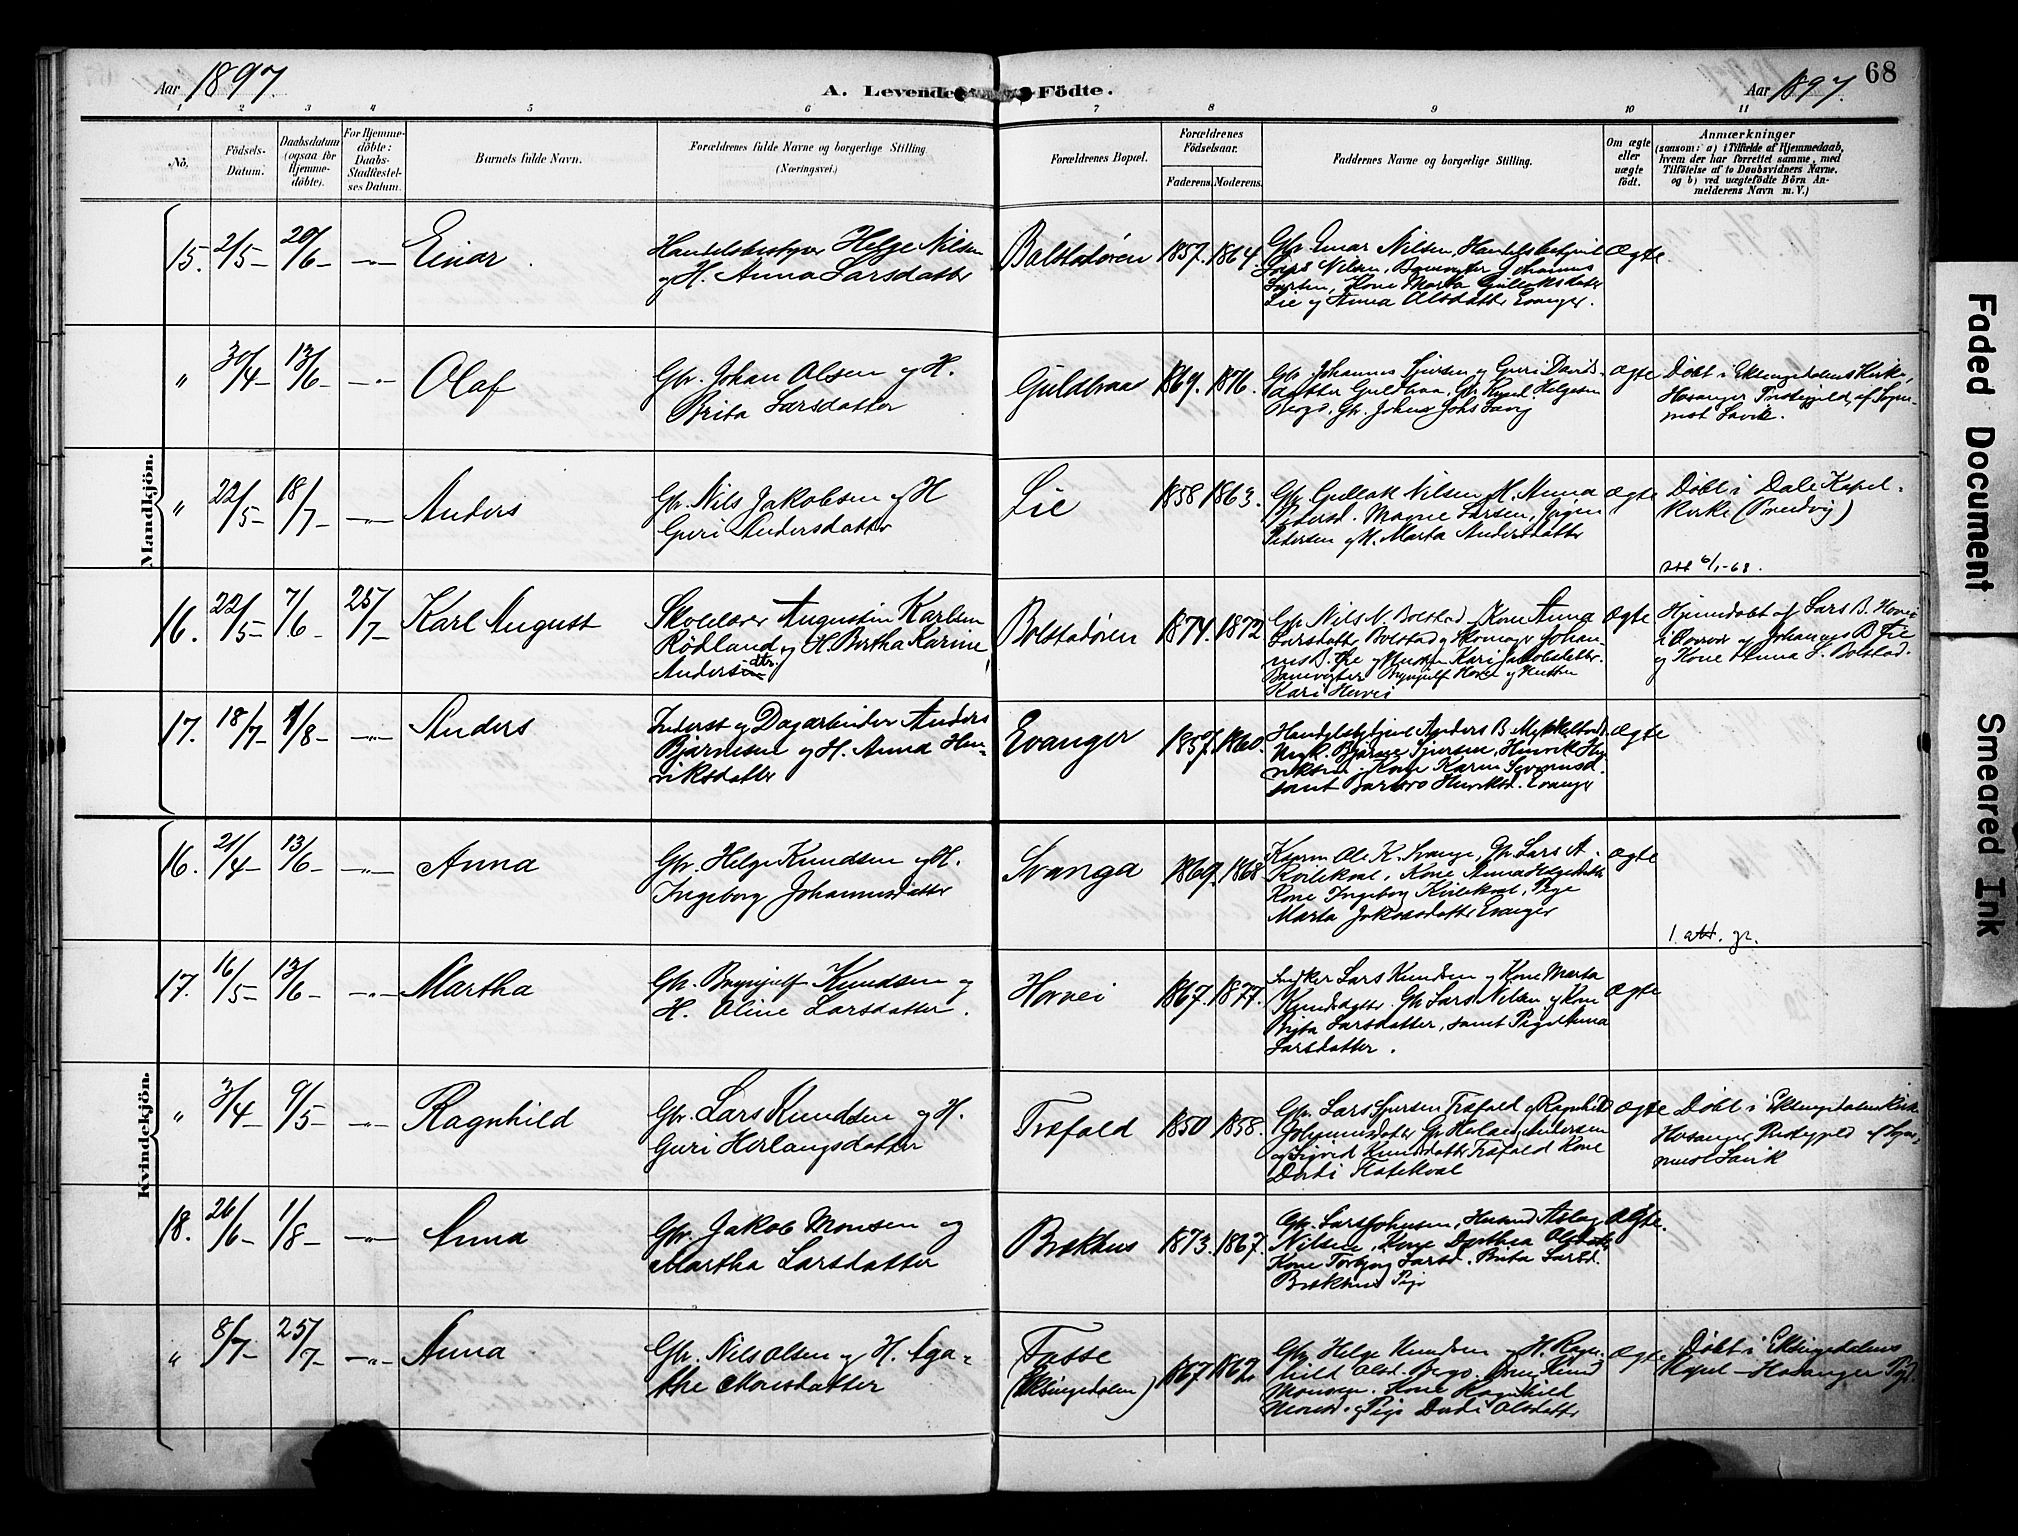 68
Aar 1897.
A. Levende Födte.
Aar 1897.
1 2 3 4 5 6 7 8 9 10 11
No.
Födsels-
Datum.
Daabsdatum
(ogsaa for
Hjemme-
döbte).
For Hjemme-
döbte:
Daabs-
Stadfæstel-
ses Datum.
Barnets fulde Navn.
Forældrenes fulde Navne og borgerlige Stilling
(Næringsvei.)
Forældrenes Bopæl.
Forældrenes
Födselsaar.
Faderens. Moderens.
Faddernes Navne og borgerlige Stilling.
Om ægte
eller
uægte
födt.
Anmærkninger
(saasom: a) i Tilfælde af Hjemmedaab,
hvem der har forrettet samme, med
Tilföielse af to Daabsvidners Navne,
og b) ved uægtefödte Börn An-
melderens Navn m. V.)
Mandkjön.
15. 2/5 20/6 Einar.
Handelsbestyrer Helge Nilsen
og H. Anna Larsdatter
Bolstadøren 1857. 1864.
Gbr. Einar Nilsen, Handelsbetjent
Lars Nilsen, Banevogter Johannes
Larsen, Kone Marta Gulleiksdatter
Lie og Anna Olsdatter Evanger.
Ægte
" 30/4 13/6 Olaf
Gbr. Johan Olsen og H.
Brita Larsdatter
Guldbraa 1869. 1876.
Gbr. Johannes Sjursen og Guri Davids-
datter Guldbraa, Gbr. Knud Helgesen
Bergo, Gbr. Johns
ægte
Døbt i Eksingedalens Kirke,
Hosanger Prestegjeld, af Sogne-
prest Lavik.
" 22/5 18/7 Anders
Gbr. Nils Jakobsen og H
Guri Andersdatter
Lie 1858 1863.
Gbr. Gullak Nilsen, H. Anna
Pedersd. Magne Larsen,
Pedersen og H. Marta Andersdatter
ægte
Døbt i Dale Kapel-
Kirke (Bruvig)
att 6/1-68.
16. 22/5 7/6 25/7 Karl August
Skolelærer Augustin Karlsen
Rødland og H. Birtha Karine
Andersdtr.
Bolstadøren 1874. 1872
Gbr. Nils N. Bolstad, Kone Anna
Larsdatter Bolstad og Skomager Johan-
nes B. Lie og Hustru Kari Jakobsdatter.
Banevogter Brynjulf Horvei og Hustru
Kari Horvei
ægte
Hjemdøbt af Lars B. Horvei
i Nærvær af Johannes B. Lie
og Kone Anna L. Bolstad.
17. 18/7 1/8 Anders
Inderst og Dagarbeider Anders
Bjarnesen og H. Anna Hen-
riksdatter
Evanger 1857. 1860.
Handelsbetjent Anders B. Mykkeltvedt
Bjarne Sjursen, Henrik Hen-
riksen, Kone Karen
samt Barbro Henriksd. Evanger
Ægte
Kvindekjön.
16. 21/4 13/6 Anna
Gbr. Helge Knudsen og H.
Ingeborg Johannesdatter
Evanga 1869. 1868
Ole K. Evanger, Gbr. Lars A.
Kvilekval, Kone Anna Helgesdatter
Kone Ingeborg Kvilekval, Pige
Marta Jakobsdatter Evanger
ægte
1. att. gr.
17. 16/5 13/6 Martha
Gbr. Brynjulf Knudsen og
H. Oline Larsdatter.
Horvei 1867. 1877.
Lars Knudsen og Kone Marta
Knudsdatter. Gbr. Lars Nilsen og Kone
Brita Larsdatter, samt Pige Anna
Larsdatter.
ægte
" 3/4 9/5 Ragnhild
Gbr. Lars Knudsen og H.
Guri Herlaugsdatter
Træfald 1850 1858.
Gbr. Lars Sjursen Træfald og Ragnhild
Johannesdatter Gbr. Helge Andersen
og Sigrid Knudsdatter Træfald Kone
Dordi Flatekval
ægte
Døbt i Eksingedalens Kirke
Hosanger Prestegjeld af Sogne-
prest Lavik
18. 26/6 1/8 Anna
Gbr. Jakob Monsen og
Martha Larsdatter
Brækhus 1873. 1867.
Gbr. Lars Johnsen, Aslag
Nilsen, Kone Dorthea Olsdatter
Kone Torbjør Larsd. Brita Larsd.
Brækhus Pige
Ægte.
" 8/7 25/7 Anna
Gbr. Nils Olsen og H. Aga-
the Monsdatter
Fasse
(Eksingedalen) 1867. 1862.
Gbr. Helge Knudsen og H. Ragn-
hild Olsd. Bergo. Knud
Monsen. Kone Ragnhild
Monsd. og Pige Dordi Olsdatter
ægte
Døbt i Eksingedalens
Kapel - Hosanger Pgj.
Faded Document
Smeared Ink